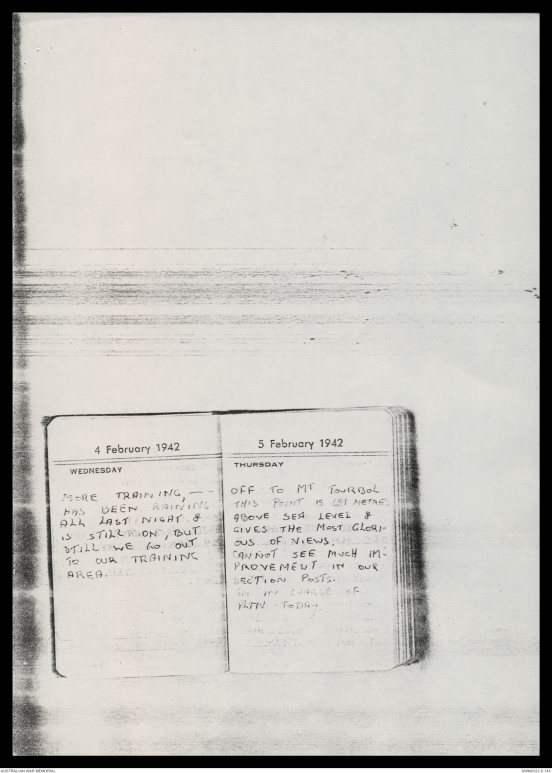 4 February 1942
WEDNESDAY
MORE TRAINING, —
HAS BEEN RAINING
ALL LAST NIGHT &
IS STILL ON, BUT
STILL WE GO OUT
TO OUR TRAINING
AREA.
5 February 1942
THURSDAY
OFF TO MT TOURBOL
THIS POINT IS 691 METRES
ABOVE SEA LEVEL &
GIVES THE MOST GLORI-
OUS OF VIEWS.
CANNOT SEE MUCH IM-
PROVEMENT IN OUR
SECTION POSTS.
IN CHARGE OF
PLTN TODAY
AUSTRALIAN WAR MEMORIAL